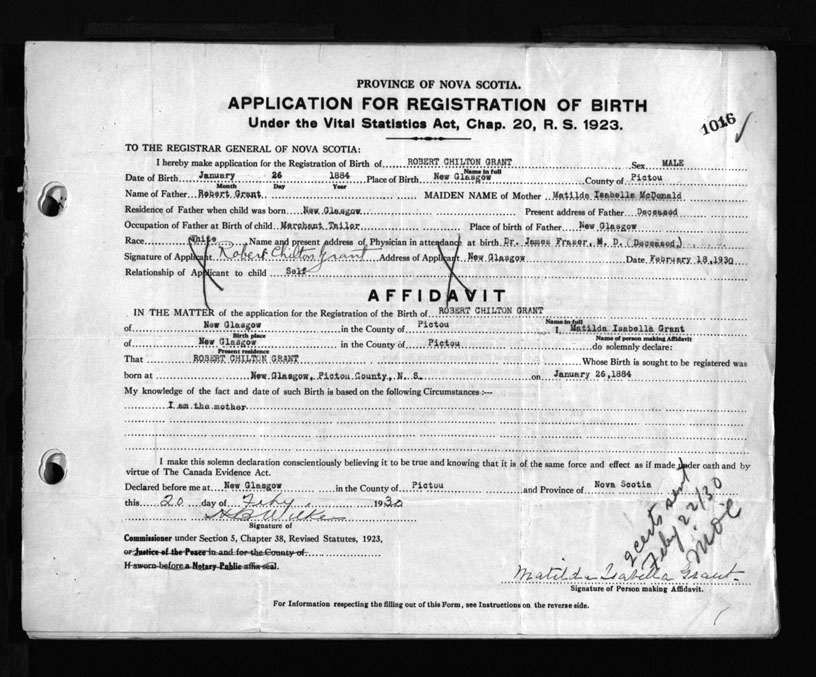 PROVINCE OF NOVA SCOTIA.
APPLICATION FOR REGISTRATION OF BIRTH
Under the Vital Statistics Act, Chap. 20, R. S. 1923.
1016
TO THE REGISTRAR GENERAL OF NOVA SCOTIA:
I hereby make application for the Registration of Birth of ROBERT CHILTON GRANT Sex MALE
Name in full
Date of Birth January 26 1884 Place of Birth New Glasgow County of Pictou
Month Day Year
Name of Father Robert Grant MAIDEN NAME of Mother Matilda Isabella McDonald
Residence of Father when child was born New Glasgow Present address of Father Deceased
Occupation of Father at Birth of child Merchant Tailor Place of birth of Father New Glasgow
Race White Name and present address of Physician in attendance at birth Dr. James Fraser, M. D. (Deceased)
Signature of Applicant Robert Chilton Grant Address of Applicant New Glasgow Date February 18, 1930
Relationship of Applicant to child Self
AFFIDAVIT
IN THE MATTER of the application for the Registration of the Birth of ROBERT CHILTON GRANT
Name in full
of New Glasgow in the County of Pictou I, Matilda Isabella Grant
Birth place Name of person making Affidavit
of New Glasgow in the County of Pictou do solemnly declare:
Present residence
That ROBERT CHILTON GRANT Whose Birth is sought to be registered was
born at New Glasgow, Pictou County, N. S. on January 26, 1884
My knowledge of the fact and date of such Birth is based on the following Circumstances :—
I am the mother
I make this solemn declaration conscientiously believing it to be true and knowing that it is of the same force and effect as if made under oath and by
virtue of The Canada Evidence Act.
Declared before me at New Glasgow in the County of Pictou and Province of Nova Scotia
this 20 day of Feby 1930
Signature of
Commissioner under Section 5, Chapter 38, Revised Statutes, 1923,
or Justice of the Peace in and for the County of
If sworn before a Notary Public affix seal.
2 certs sent
Feby 22/30
Matilda Isabella Grant
Signature of Person making Affidavit.
For Information respecting the filling out of this Form, see Instructions on the reverse side.